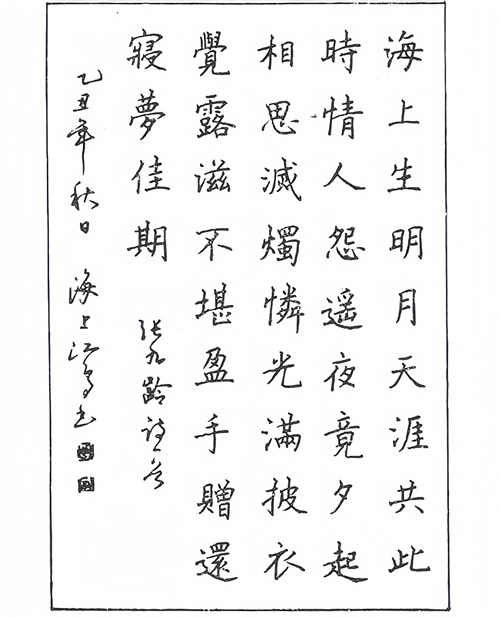 海上生明月天涯共此
時情人怨遥夜竟夕起
相思滅燭憐光滿披衣
覺露滋不堪盈手贈還
寢夢佳期
张九齡詩一首
乙丑年秋日 海上江